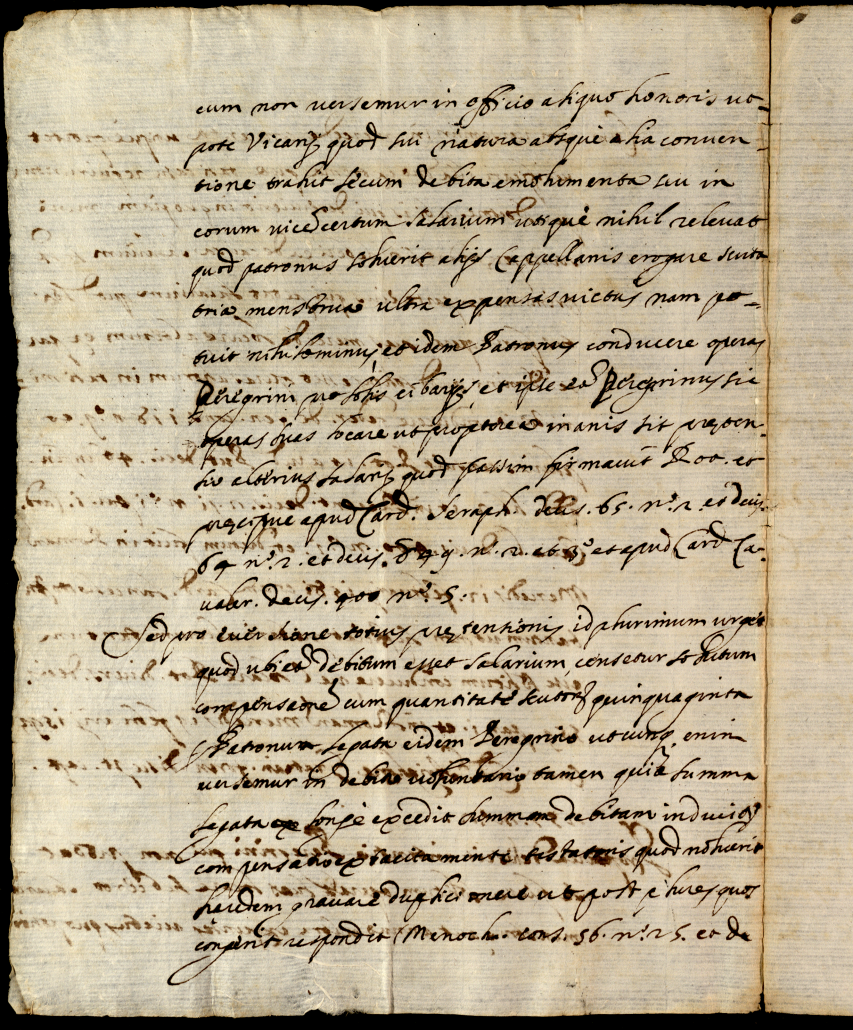 cum non versemur in officio aliquo honoris ut-
pote Vicarij quod sui natura absque alia conven-
tione trahit secum debita emolumenta siu in
eorum vicē certum salarium utique nihil relevat
quod patronus soluerit alijs Cappellanis erogare scuta
tria menstrua ultra expensas victus nam po-
tuit nihilominus et idem Patronus conducere operas
Peregrini pro solis cibarijs et ipse Peregrinus sic
operas suas locare ut propterea inanis sit præten-
sio alterius salarij quod passim firmavit Rot. et
præcipue apud Card. Seraph. decis. 65. nº. 2. et decis.
64 nº 2. et decis. 849. nº. 2. et 3º et apud Card Ca-
valer. decis. 400 nº. 5.
Sed pro everchione totius prætentionis id plurimum urget
quod ubi et debitum esset salarium censetur solutum
compensaōne cum quantitate scutor quinquaginta
Patronum legata eidem Peregrino utcunq enim
versemur in debito voluntario tamen quia summa
legata longè excedit summam debitam inducitur
compensatio ex tacita mente testatoris quod noluerit
heredem gravare duplici onere ut post plures quos
congerit respondit Menoch. cons. 56. nº. 25. et de